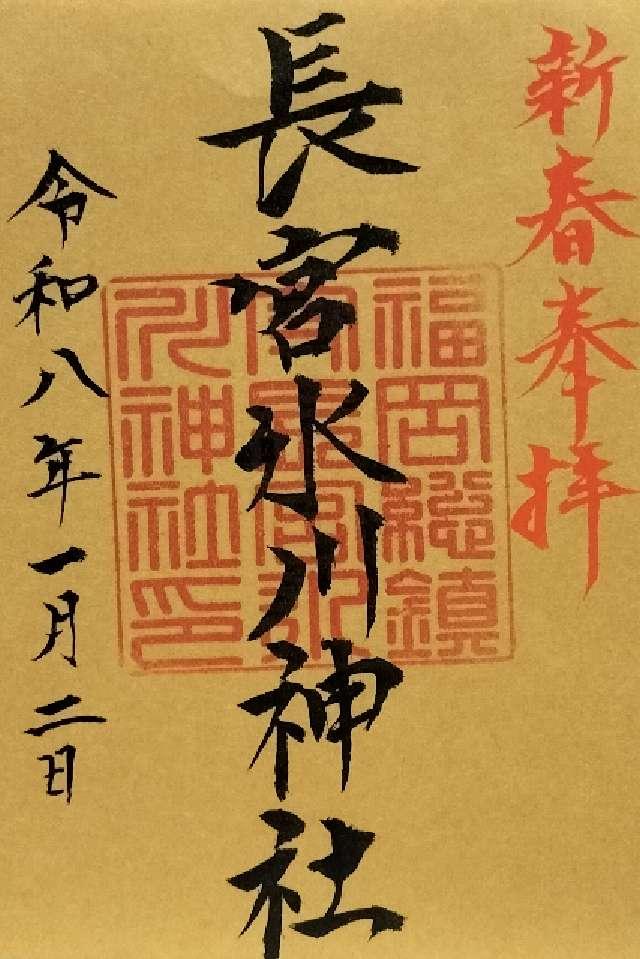 新春奉拝
長宮氷川神社
福岡総鎮
川神社印
令和八年一月二日